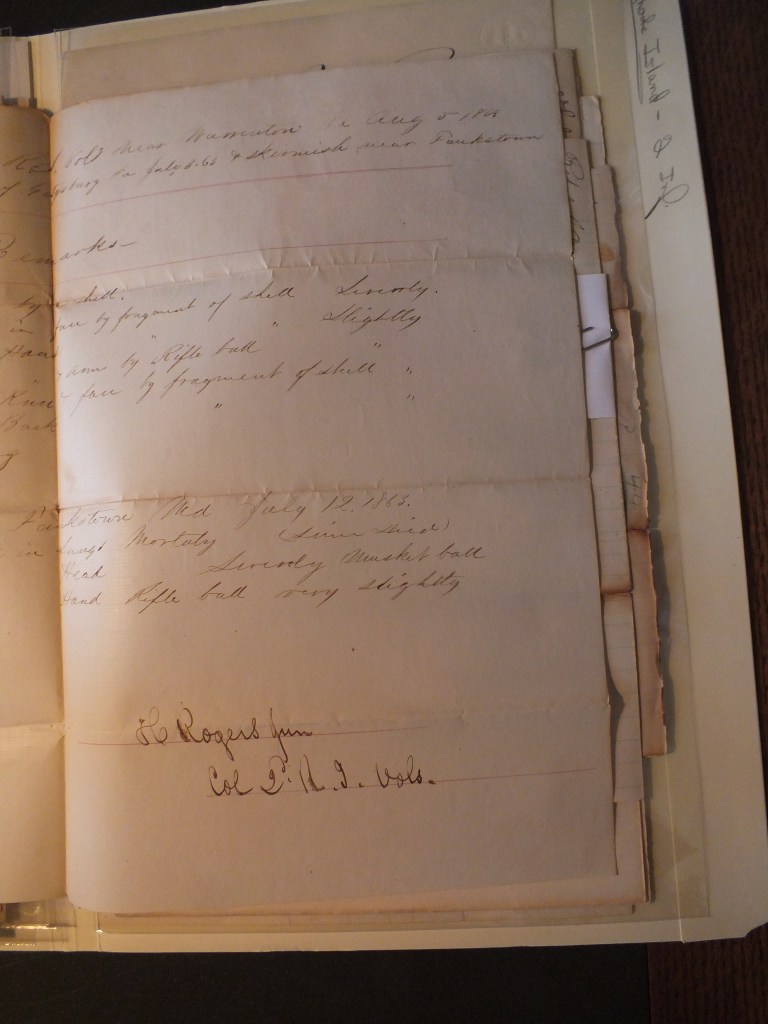 Vols Near Warrenton Va Aug 5 186
Gettysburg Pa July 3. 63 & Skirmish near Funkstown
Remarks—
by shell.
in face by fragment of shell Severely.
" " Slightly
Hand arm by Rifle ball "
face by fragment of shell "
Back " "
Funkstown Md July 12. 1863.
in Lungs Mortaly (since died)
Head Severely Musket ball
Hand Rifle ball very slightly
H Rogers Jun
Col 2d. R. I. Vols.
Rhode Island - 2 Inf.